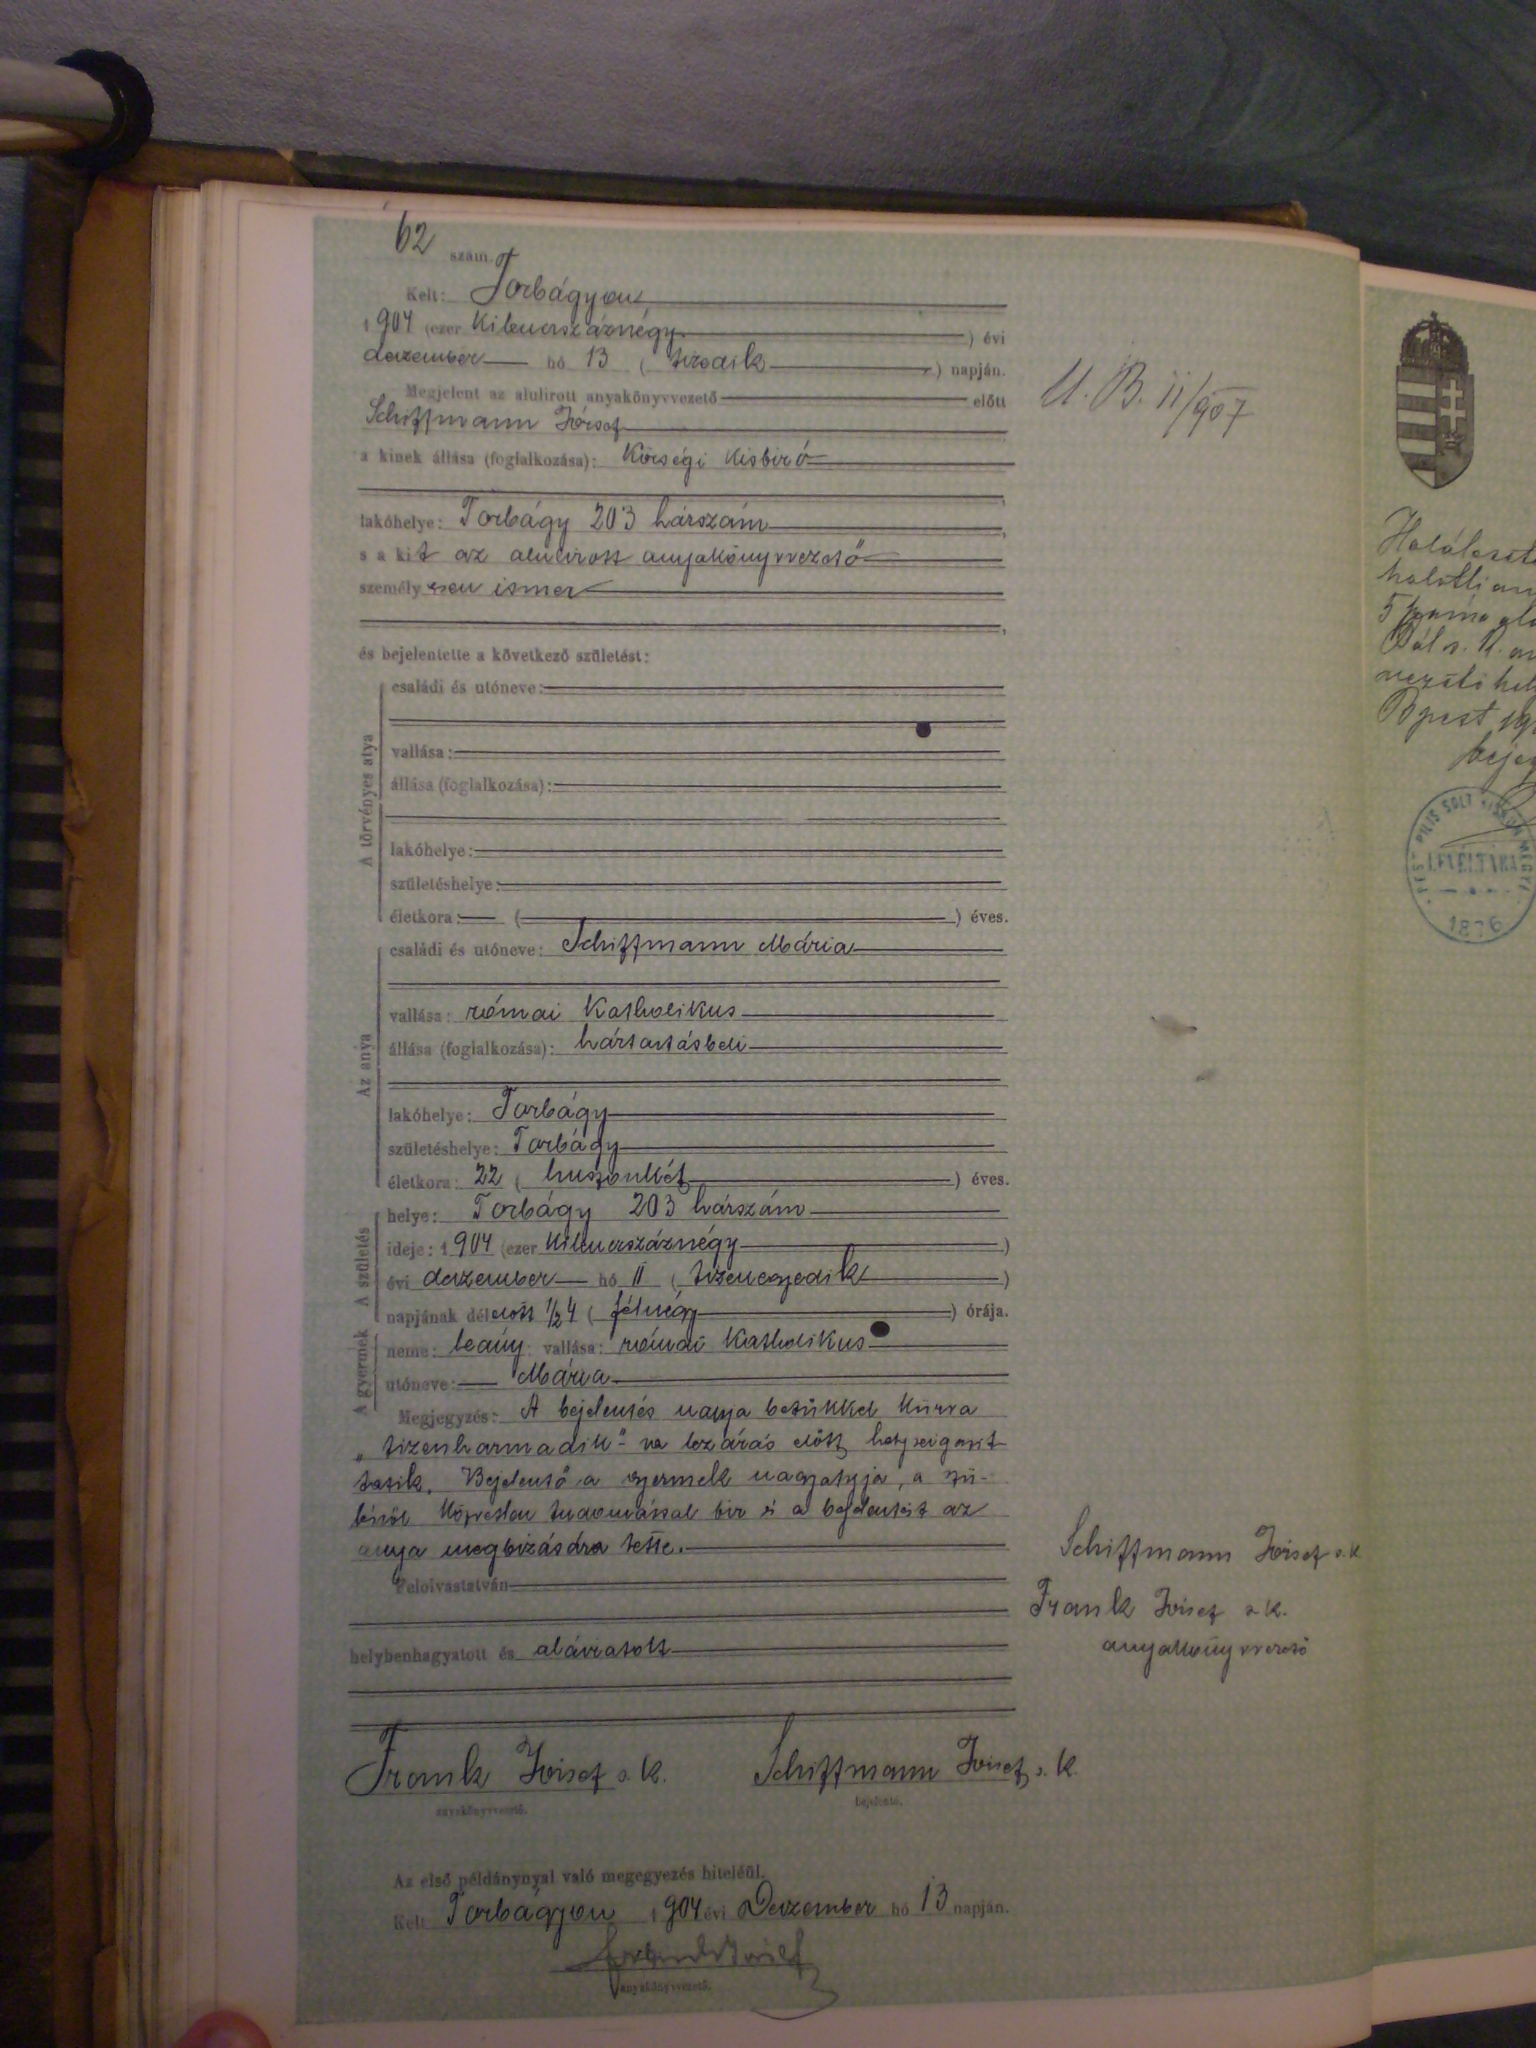 62 szám.
Kelt: Torbágyon
1904 (ezer kilencszáznégy) évi
dezember hó 13 (tizedik) napján.
Megjelent az alulirott anyakönyvvezető előtt
Schiffmann József
a kinek állása (foglalkozása): Községi kisbiró
lakóhelye: Torbágy 203 házszám,
s a kit az alulirott anyakönyvvezető
személyesen ismer,
és bejelentette a következő születést:
A törvényes atya
családi és utóneve:
vallása:
állása (foglalkozása):
lakóhelye:
születéshelye:
életkora: ( ) éves.
Az anya
családi és utóneve: Schiffmann Mária
vallása: római katholikus
állása (foglalkozása): háztartásbeli
lakóhelye: Torbágy
születéshelye: Torbágy
életkora: 22 (huszonkét) éves.
A születés
helye: Torbágy 203 házszám
ideje: 1904 (ezer kilencszáznégy)
évi dezember hó 11 (tizenegyedik)
napjának délelőtt 1/2 4 (félnégy) órája.
A gyermek
neme: leány; vallása: római katholikus
utóneve: Mária
Megjegyzés: A bejelentés napja betükkel kiirva
„tizenharmadik"-ra lezárás előtt helyreigazit
tatik. Bejelentő a gyermek nagyatyja, a szü-
lésről közvetlen tudomással bir és a bejelentést az
anya megbizására tette.
Felolvastatván
helybenhagyatott és aláiratott
Frank József s. k.
anyakönyvvezető.
Schiffmann József s. k.
bejelentő.
Az első példánynyal való megegyezés hiteléül.
Kelt Torbágyon 1904 évi Dezember hó 13 napján.
Frank József
anyakönyvvezető.
U. B. 11/907
Schiffmann József s. k.
Frank József s. k.
anyakönyvvezető
5 száma
Bpest 19
PILIS SOLT KISKUN MEGYE
LEVÉLTÁRA
1876